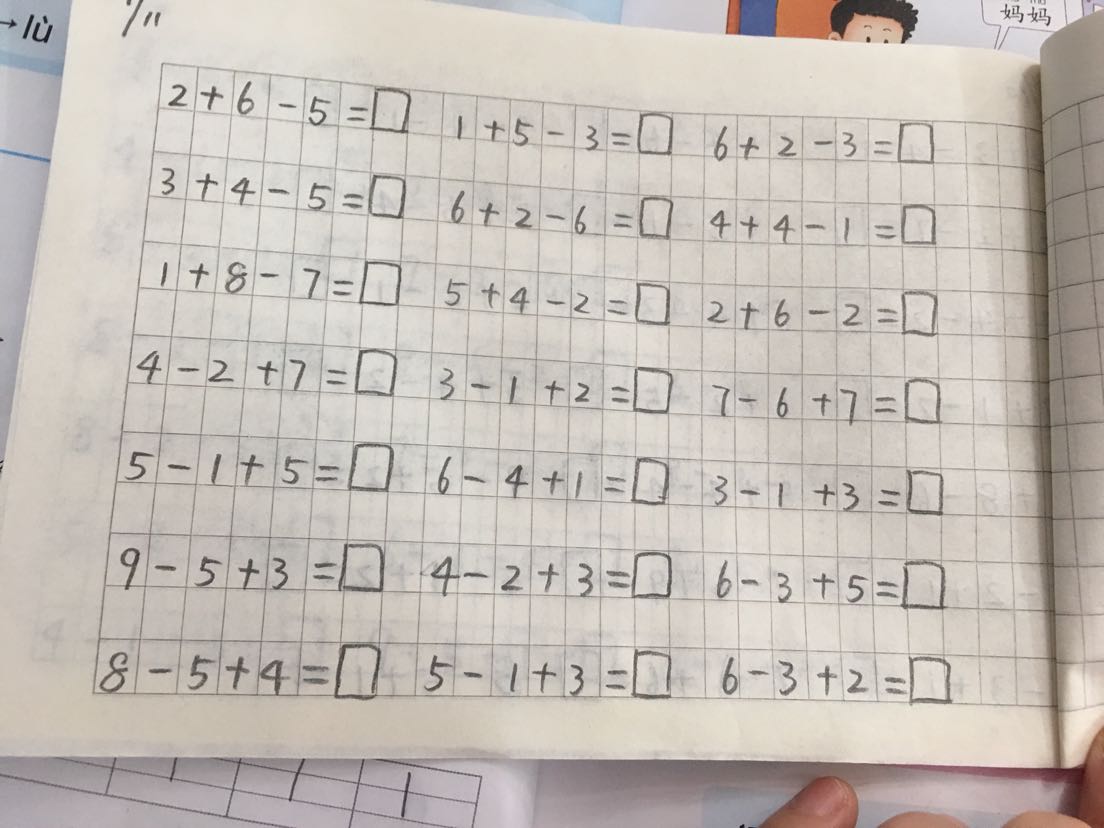 →lù
妈妈
1/11
2+6-5=□ 1+5-3=□ 6+2-3=□
3+4-5=□ 6+2-6=□ 4+4-1=□
1+8-7=□ 5+4-2=□ 2+6-2=□
4-2+7=□ 3-1+2=□ 7-6+7=□
5-1+5=□ 6-4+1=□ 3-1+3=□
9-5+3=□ 4-2+3=□ 6-3+5=□
8-5+4=□ 5-1+3=□ 6-3+2=□